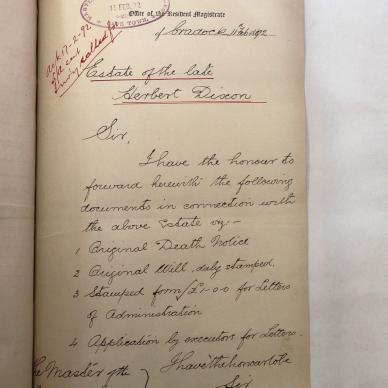 15 FEB. 22
Office of the Resident Magistrate
of Cradock 11 Feb 1922
Estate of the late
Herbert Dixon
Sir,
I have the honour to
forward herewith the following
documents in connection with
the above Estate viz:-
1 Original Death Notice
2 Original Will, duly stamped.
3 Stamped form/£1-0-0 for Letters
of Administration
4 Application by executor for Letters.
The Master of the
I have the honour to be
Sir